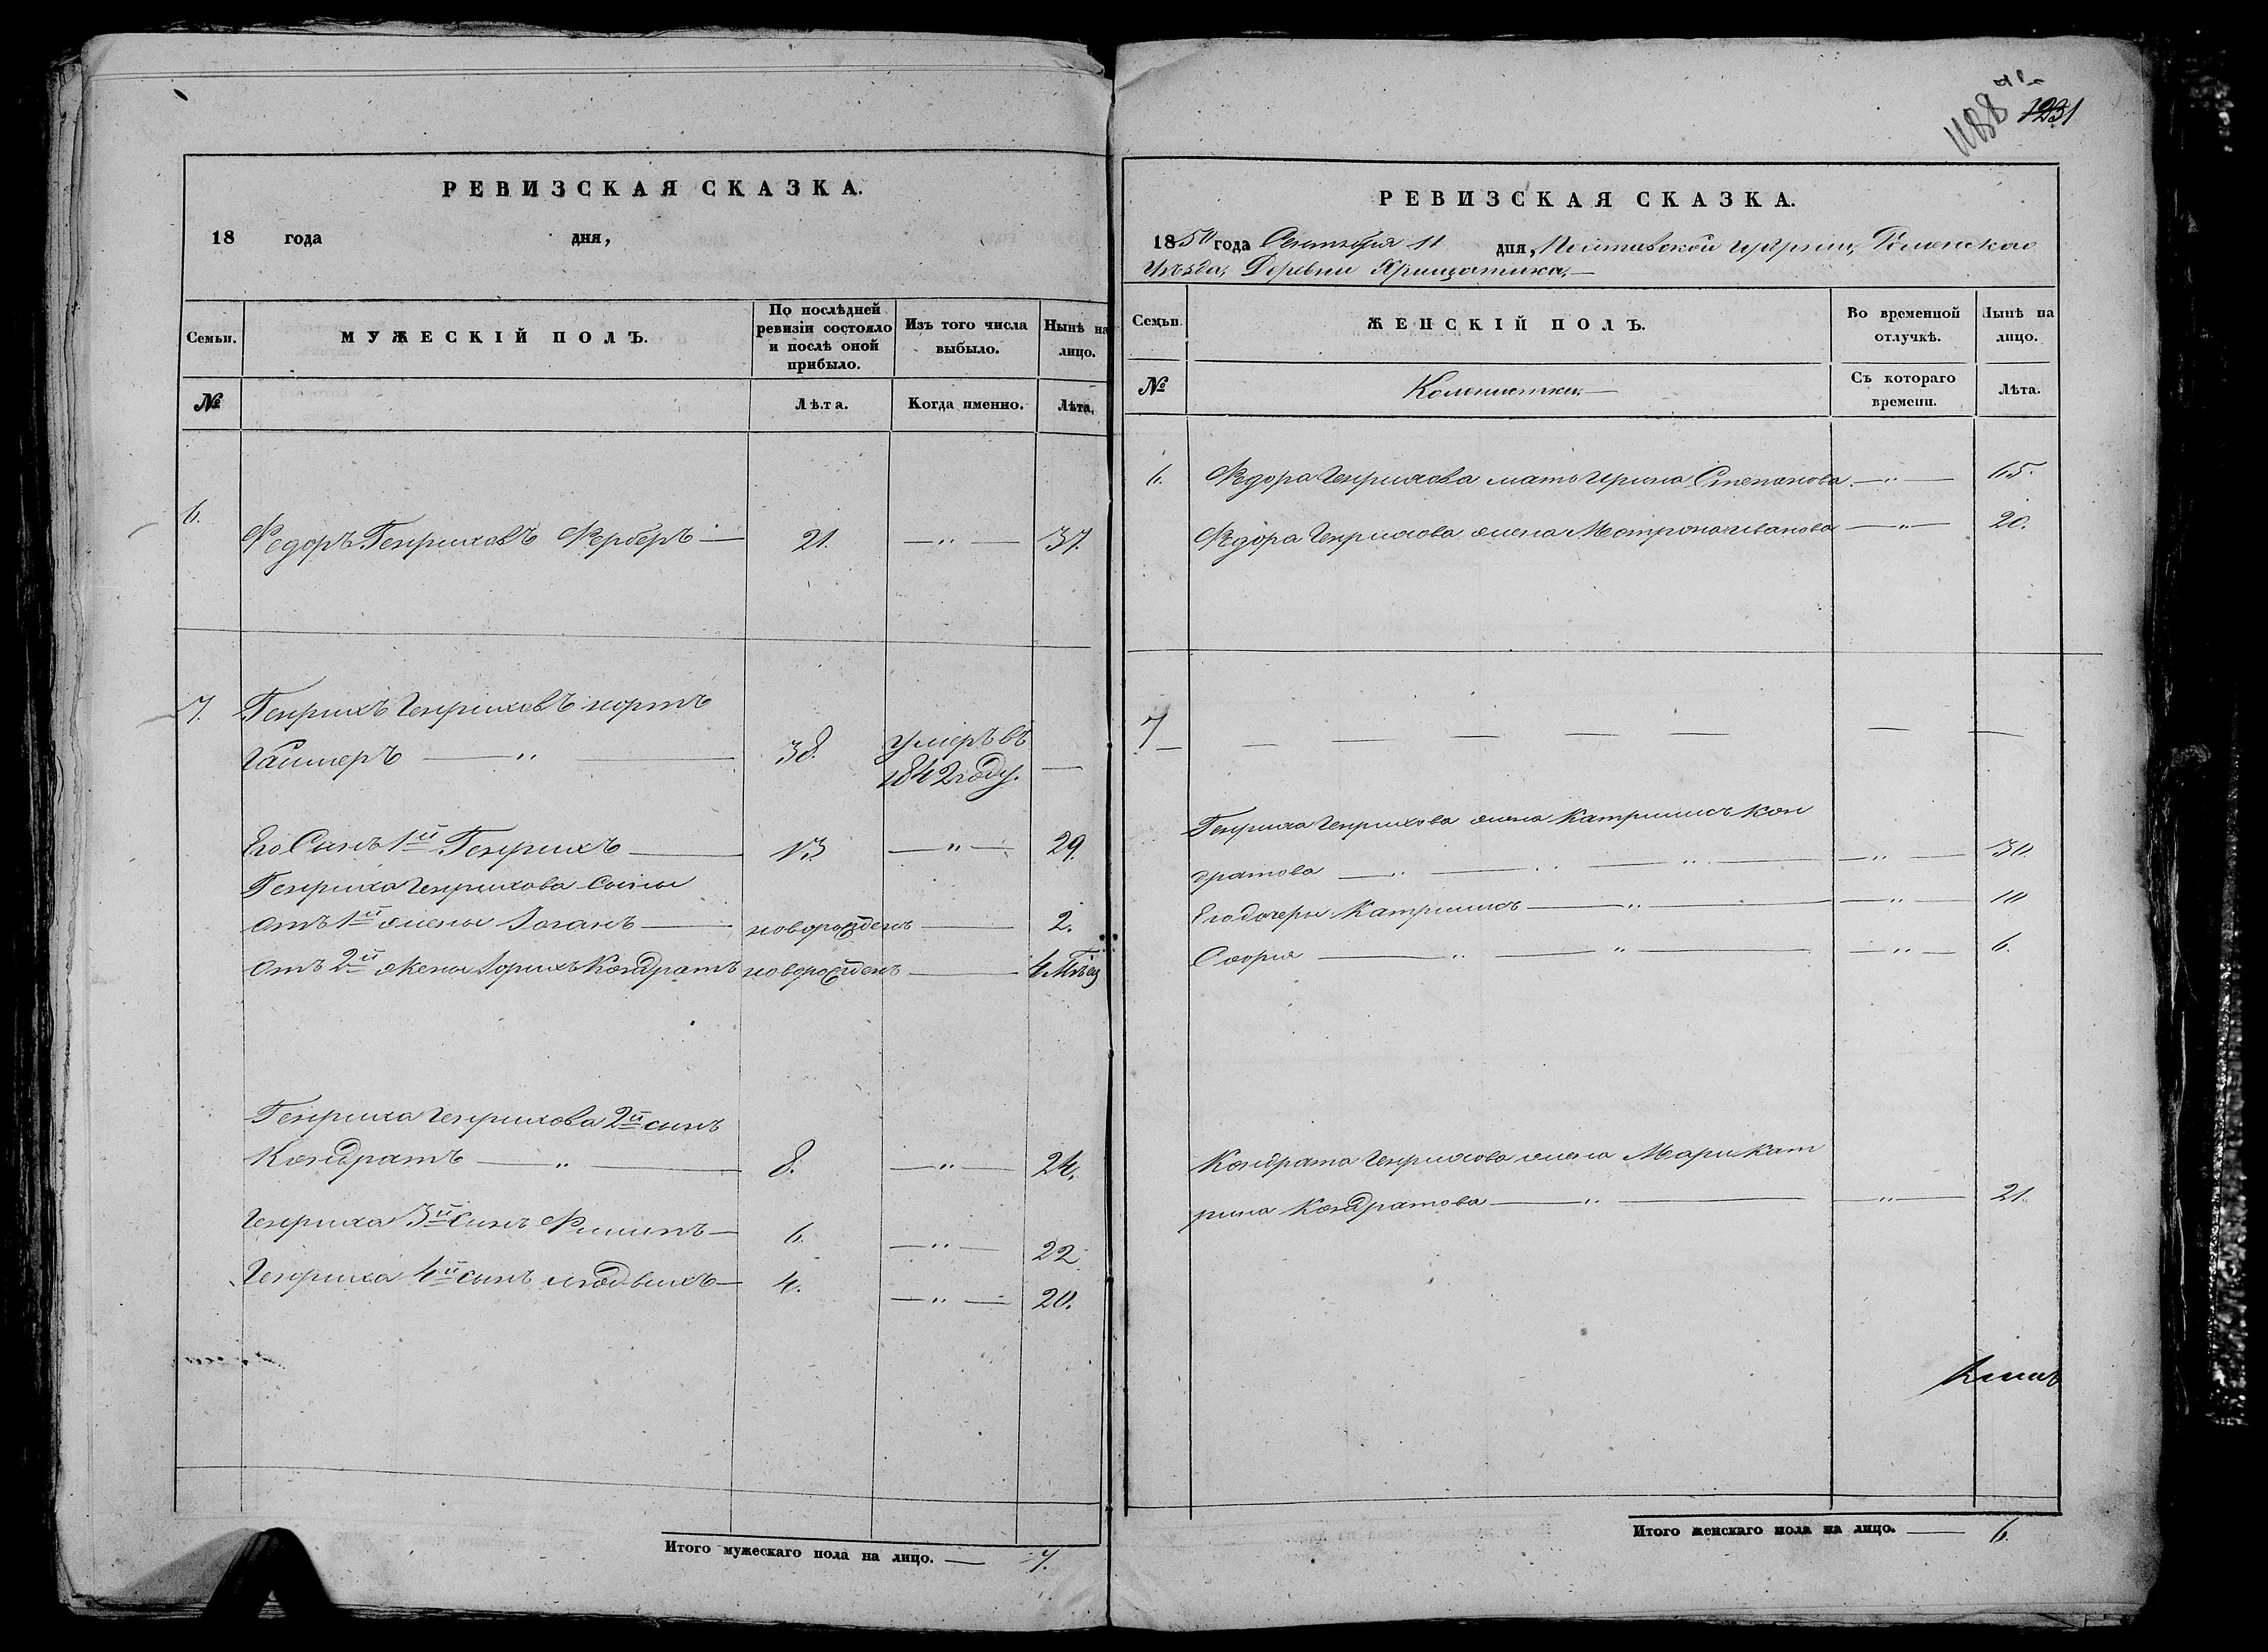 РЕВИЗСКАЯ СКАЗКА.
18 года дня,
Семьи.
МУЖЕСКІЙ ПОЛЪ.
По послѣдней ревизіи состояло и послѣ оной прибыло.
Изъ того числа выбыло.
Нынѣ на лицо.
№
Лѣта.
Когда именно.
Лѣта.
6.
Федоръ Генриховъ Ферберъ — 21. — " — 37.
7. Генрихъ Генриховъ
38. умеръ въ
1842 году. —
Его Сынъ 1й Генрихъ — 13 — " — 29.
Генриха Генрихова сыны
отъ 1й жены Іоганъ — новорожденъ — 2.
отъ 2й жены Кондратъ новорожденъ — 4 Мѣсц
Генриха Генрихова 2й сынъ
Кондратъ — " — 8. — " — 24.
Генриха 3й сынъ Филипъ — 6. — " — 22.
Генриха 4й сынъ Людвихъ — 4. — " — 20.
Итого мужескаго пола на лицо. — 7.
1188
1231
РЕВИЗСКАЯ СКАЗКА.
1850 года Сентября 11 дня, Полтавской губерніи, Роменского
Уѣзда, Деревни
Семьи.
ЖЕНСКІЙ ПОЛЪ.
Во временной отлучкѣ.
Нынѣ на лицо.
№
Колонистки. —
Съ котораго времени.
Лѣта.
6. Федора Генрихова мать Ирина Степанова — " — 65.
Федора Генрихова жена Мотрона Иванова — " — 20.
7 — — — — — — —
Генриха Генрихова жена Катринлисъ Кон
дратова — " — " — — " — 30.
Его дочери Катринлисъ — " — — " — 10
София — " — " — — " — 6.
Кондрата Генрихова жена Мари Кат
рина Кондратова — " — — " — 21.
Итого женскаго пола на лицо. — 6.